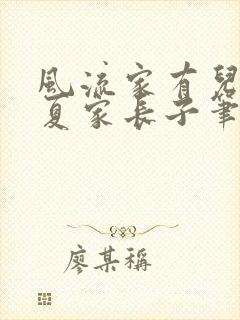 風流家有兒
夏家長子筆
廖某稱